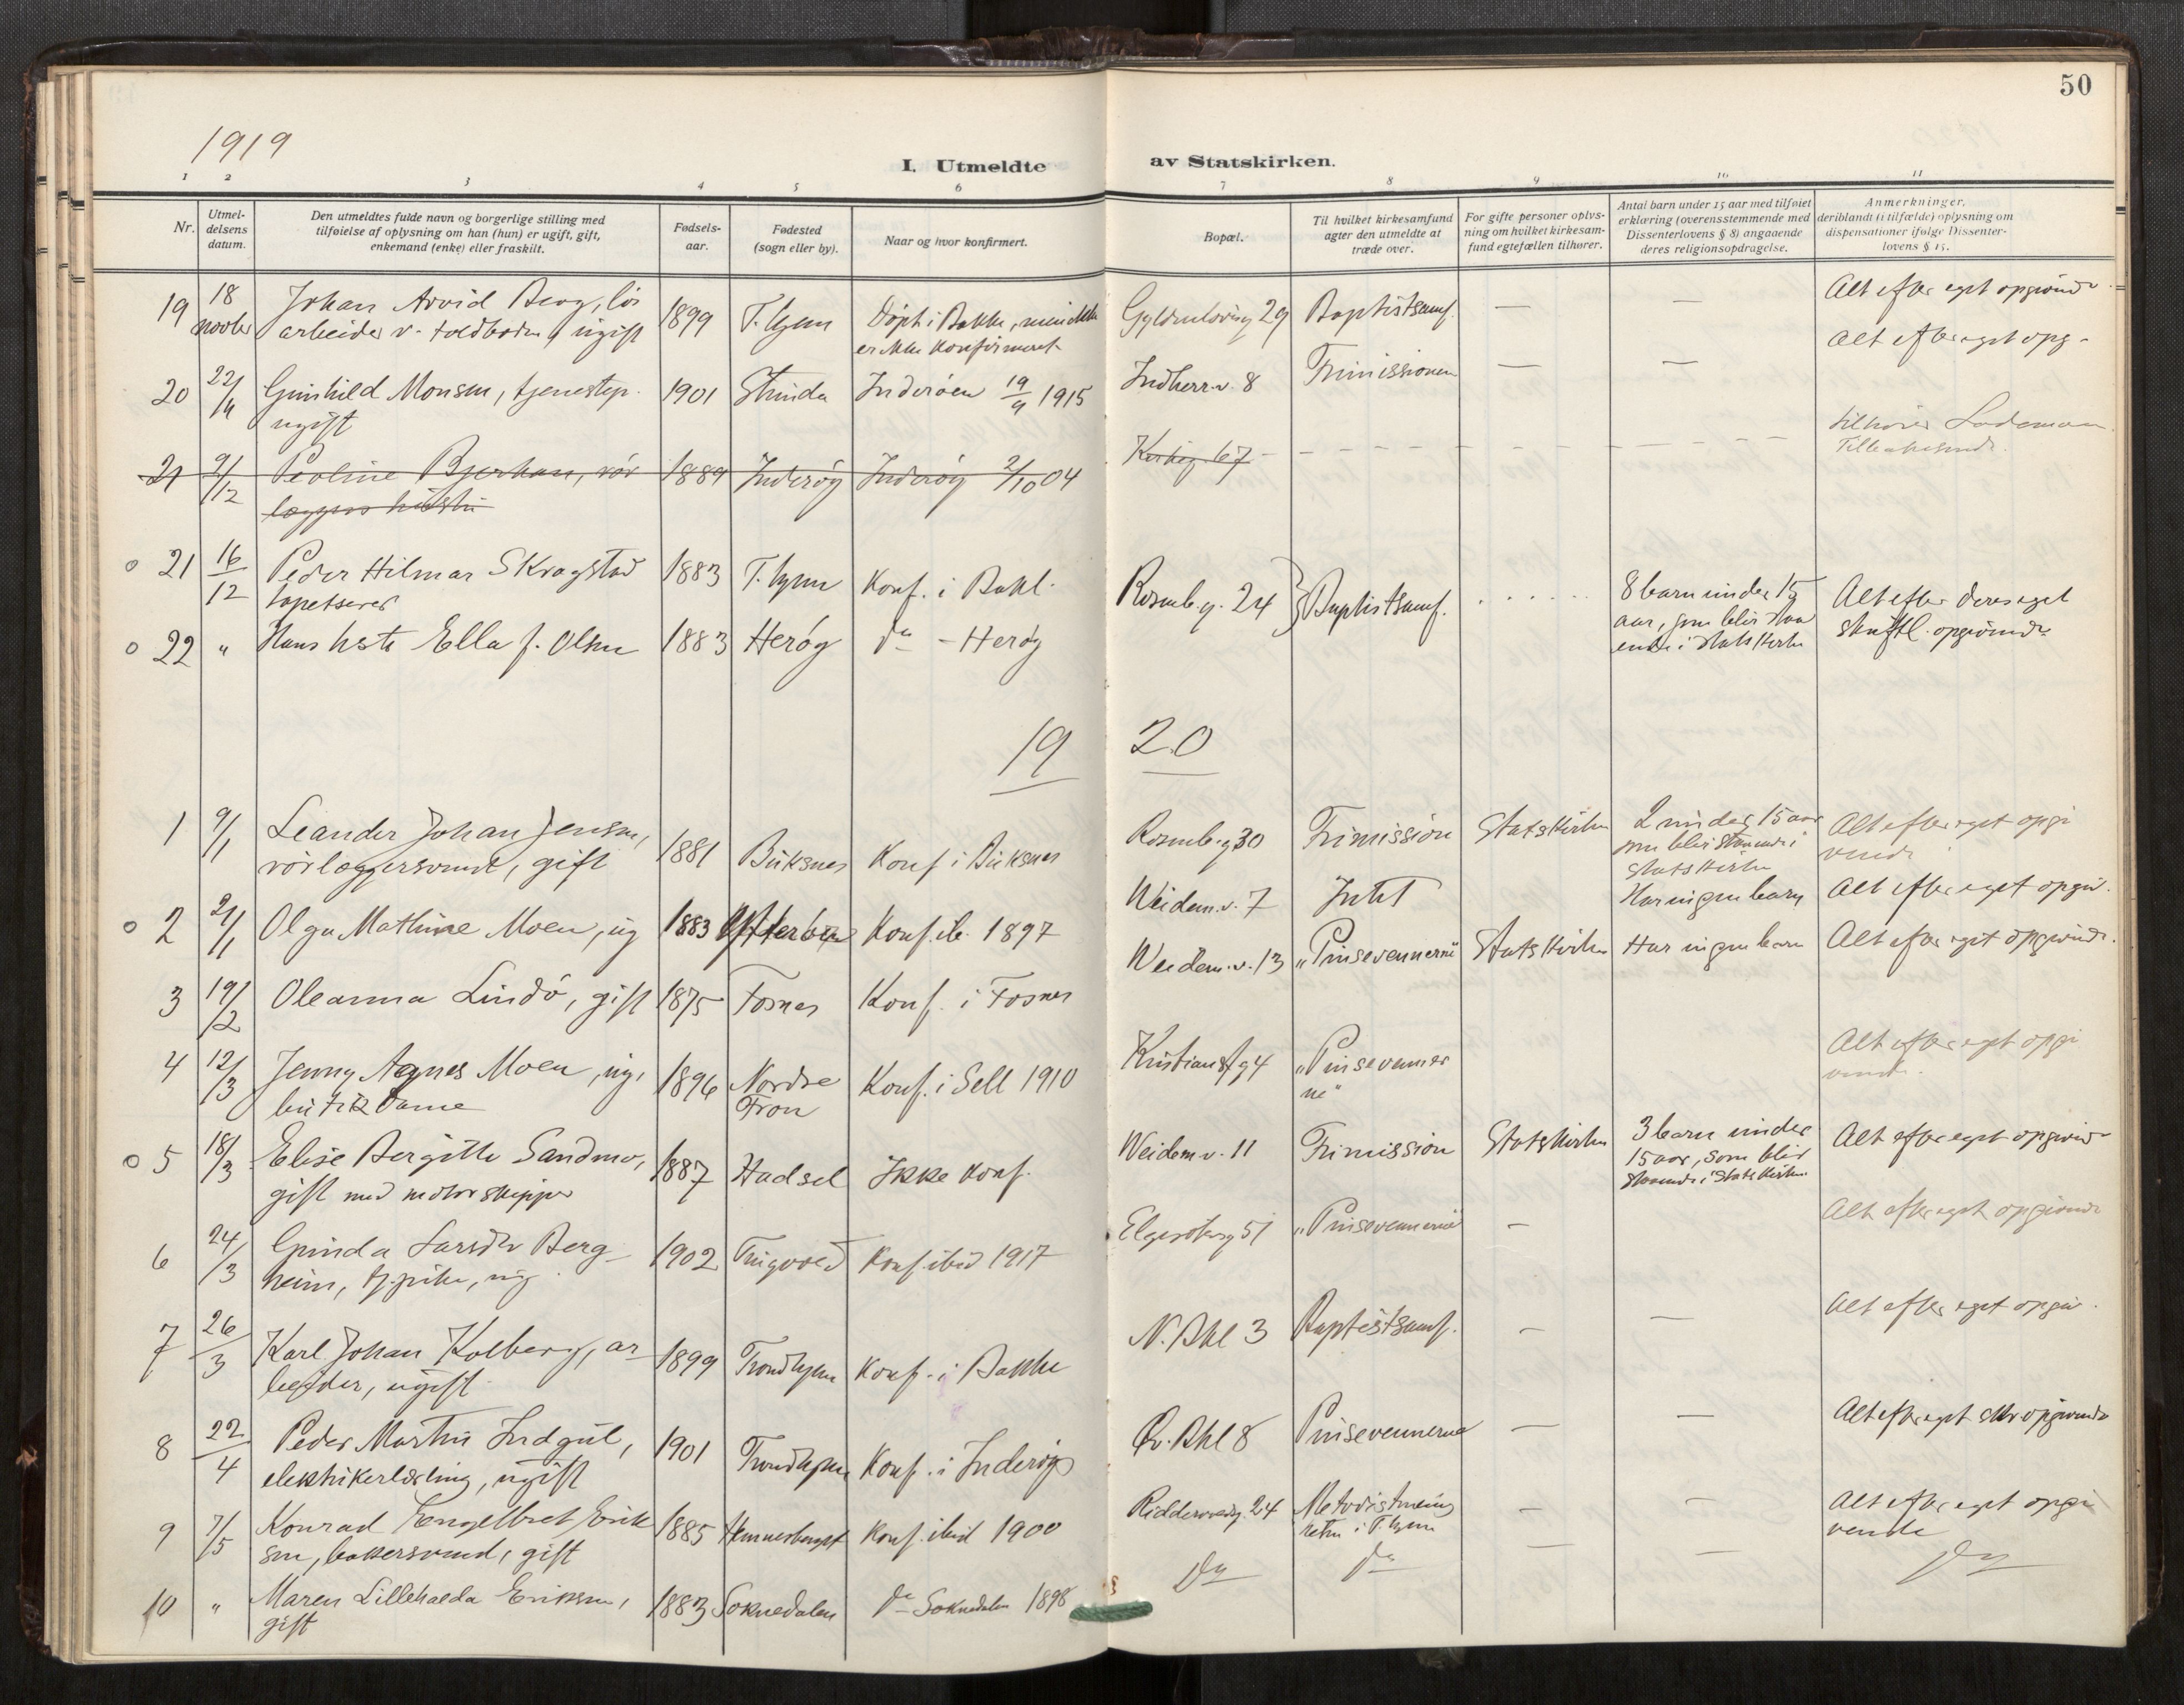 50
1919
I. Utmeldte av Statskirken.
1 2 3 4 5 6 7 8 9 10 11
Nr.
Utmel-
delsens
datum.
Den utmeldtes fulde navn og borgerlige stilling med
tilføielse af oplysning om han (hun) er ugift, gift,
enkemand (enke) eller fraskilt.
Fødsels-
aar.
Fødested
(sogn eller by).
Naar og hvor konfirmert.
Bopæl.
Til hvilket kirkesamfund
agter den utmeldte at
træde over.
For gifte personer oplys-
ning om hvilket kirkesam-
fund egtefællen tilhører.
Antal barn under 15 aar med tilføiet
erklæring (overensstemmende med
Dissenterlovens § 8) angaaende
deres religionsopdragelse.
Anmerkninger,
deriblandt (i tilfælde) oplysning om
dispensationer ifølge Dissenter-
lovens § 15.
19 18 novbr Johan Arvid Berg, løs 1899 T.hjem Døpt i Bakke, men ikke Baptistsamf. — — Alt efter eget opgivende
arbeider v. toldboden, ugift er ikke konfirmeret
20 22/11 Gunhild Monsen, tjenestep. 1901 Strinda Inderøen 19/9 1915 Indherr.v. 8 Frimissionen — — Alt efter eget opg.
ugift
21 9/12 Peoline Bjerkan, rør 1889 Inderøy Inderøy 2/10 04 Kirkeg. 67 tilhører Lademoen
læggers hustru
21 16/12 Peder Hilmar Skragstad 1883 T.hjem Konf. i Bakl. Rosenb.g. 24 Baptistsamf. 8 barn under 15 Alt efter deres eget
tapetserer aar, som blir staa skriftl. opgivende
22 " Hans hstr Ella f. Olsen 1883 Herøy do - Herøy ende i Statskirken
19 20
1 9/1 Leander Johan Jensen, 1881 Buksnes Konf. i Buksnes Rosenb.g 30 Frimission Statskirken 2 under 15 aar Alt efter eget opgi
rørlæggersvend, gift som blir staaende i vende
Statskirken
2 21/1 Olga Mathine Moen, ug 1883 Konf. ib. 1897 Weidem.v. 7 Intet Har ingen barn Alt efter eget opgiv.
3 19/2 Oleanna Lindø, gift 1875 Fosnes Konf. i Fosnes Weidem.v. 13 "Pinsevennerne" Statskirken Har ingen barn Alt efter eget opgivende.
4 12/3 Jenny Agnes Moen, ug, 1896 Nordre Konf. i Sell 1910 Kristiansf.g 4 "Pinsevenner Alt efter eget opgi
butikdame Fron ne" vende.
5 18/3 Elise Bergitte Sandmo, 1887 Hadsel Ikke konf. Weidem.v. 11 Frimission Statskirken 3 barn under Alt efter eget opgivende
gift med motorskipper 15 aar, som blir
staaende i Statskirken
6 24/3 Gunda Larsdtr Berg- 1902 Tingvoed Konf. ibid 1917 51 "Pinsevennerne" — Alt efter eget opgivende
heim, tj.pike, ug
7 26/3 Karl Johan Kolberg, ar- 1899 Trondhjem Konf. i Bakke N. Bkl 3 Baptistsamf. — — Alt efter eget opgiv.
beider, ugift
8 22/4 Peder Martin Indgul, 1901 Trondhjem Konf. i Inderøy Øv. Bkl 8 Pinsevennerne — — Alt efter eget skr opgivende
elektrikerlærling, ugift
9 7/5 Konrad Engelbret Erik 1885 Konf. ibid 1900 24 Metodistmenig — — Alt efter eget opgi
sen, bakersvend, gift heten i T.hjem vende
10 " Maren Lillehaeda Eriksen, 1883 Soknedalen do Soknedalen 1898 Do do — — Do
gift